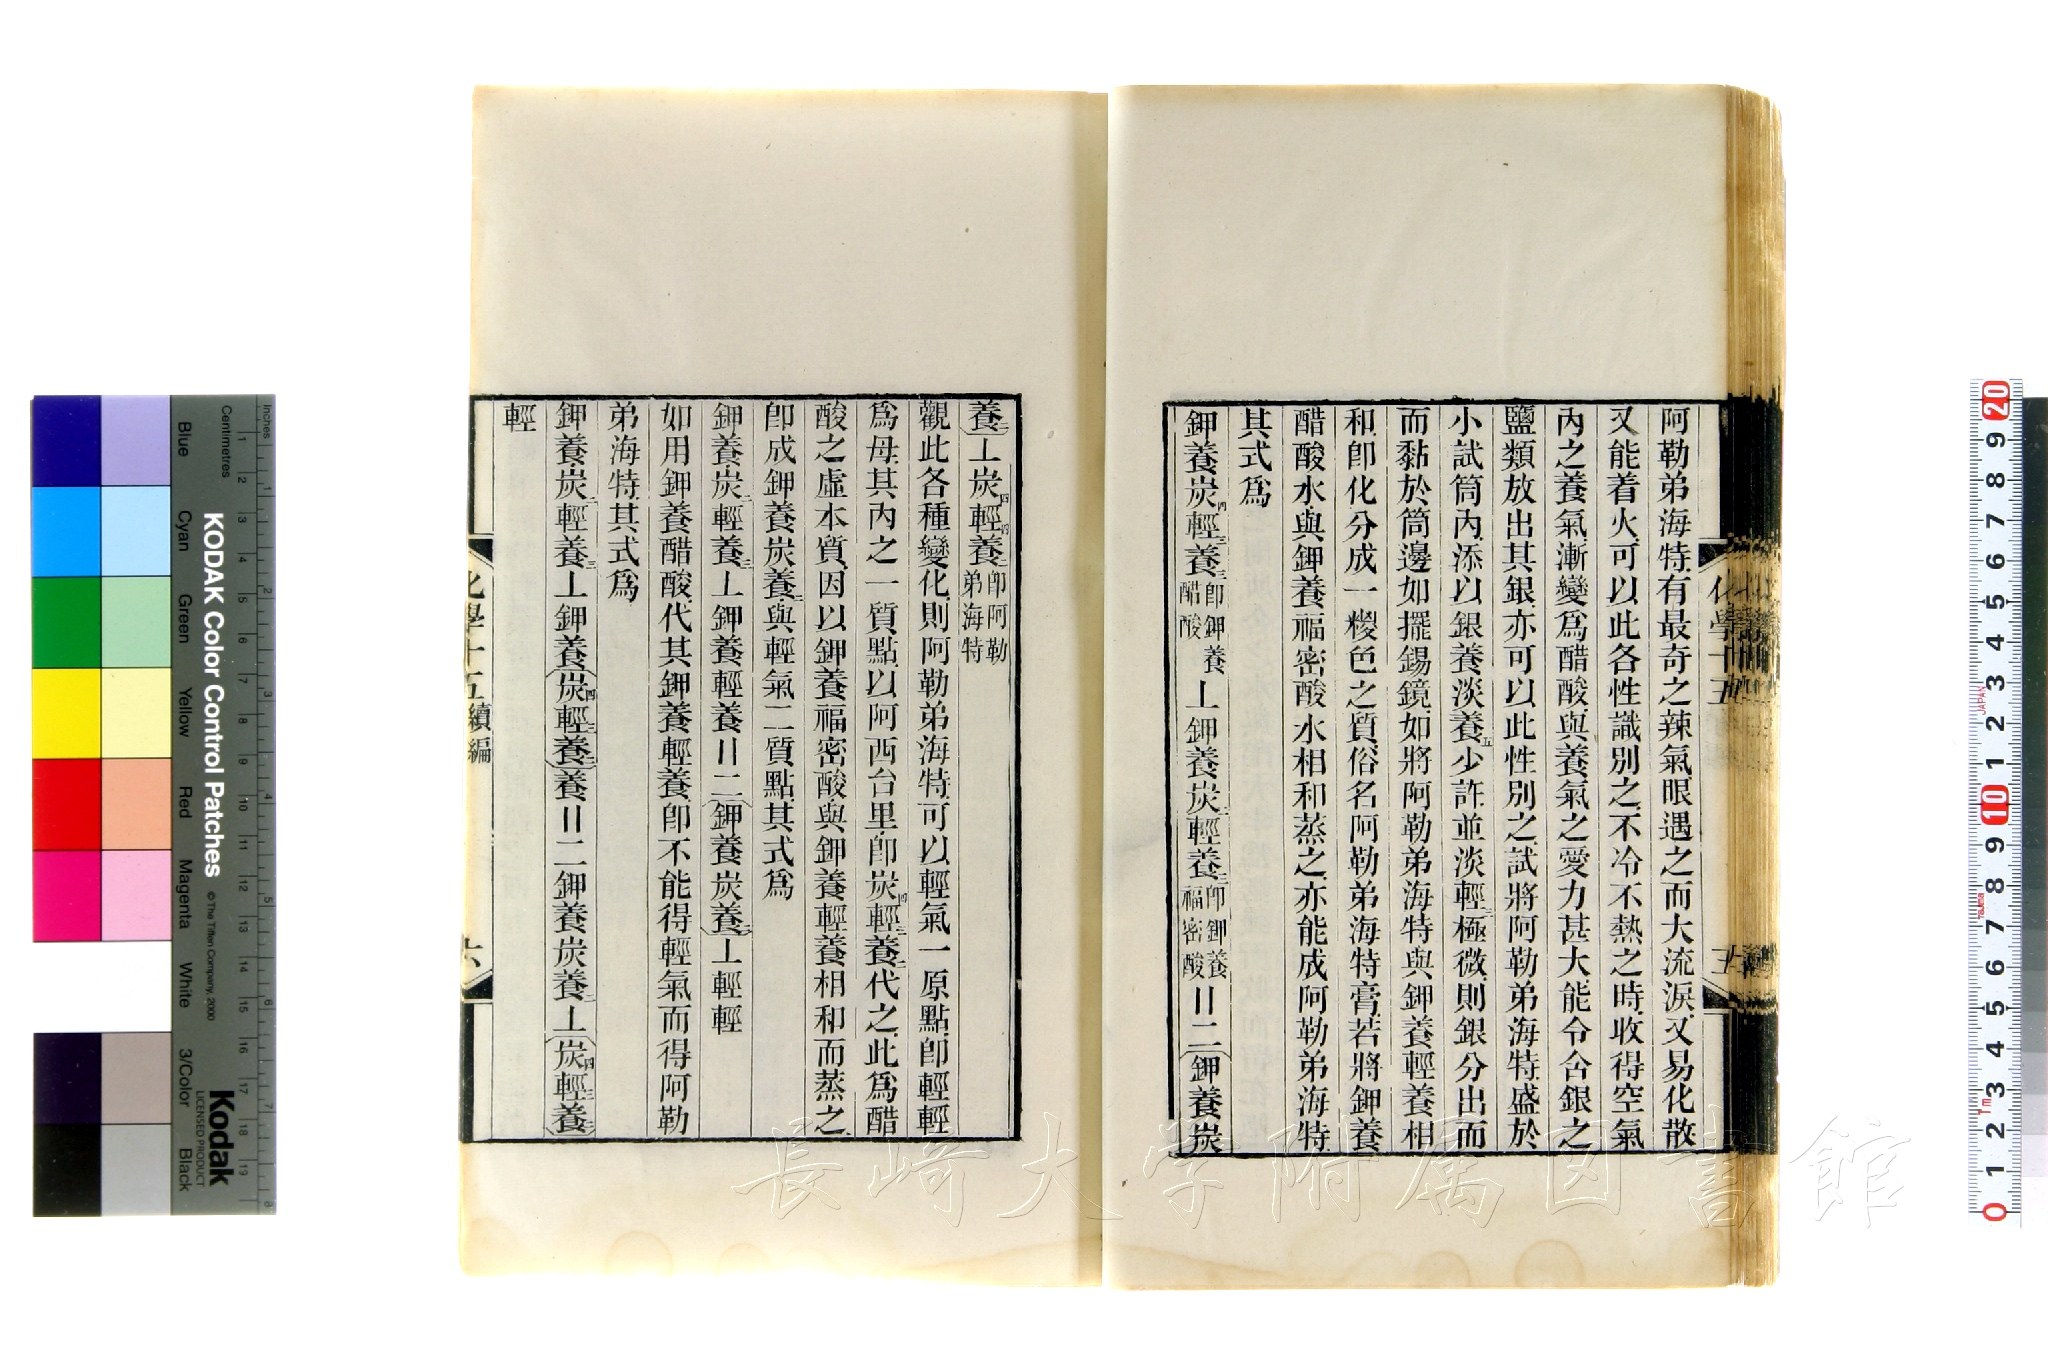 阿勒弟海特有最奇之辣氣眼遇之而大流淚又易化散
又能着火可以此各性識別之不冷不熱之時收得空氣
內之養氣漸變爲醋酸與養氣之愛力甚大能令含銀之
鹽類放出其銀亦可以此性別之試將阿勒弟海特盛於
小試筒內添以銀養淡養五少許並淡輕三極微則銀分出而
而黏於筒邊如擺錫鏡如將阿勒弟海特與鉀養輕養相
和卽化分成一樱色之質俗名阿勒弟海特膏若將鉀養
醋酸水與鉀養福密酸水相和蒸之亦能成阿勒弟海特
其式爲
鉀養炭四輕三養三卽鉀養醋酸⊥鉀養炭二輕養三卽鉀養福密酸〢二(鉀養炭
化學十五
五
養二)⊥炭四輕四養二卽阿勒弟海特
觀此各種變化則阿勒弟海特可以輕氣一原點卽輕輕
爲母其內之一質點以阿西台里卽炭四輕三養二代之此爲醋
酸之虛本質因以鉀養福密酸與鉀養輕養相和而蒸之
卽成鉀養炭養二與輕氣二質點其式爲
鉀養炭二輕養三⊥鉀養輕養〢二(鉀養炭養二)⊥輕輕
如用鉀養醋酸代其鉀養輕養卽不能得輕氣而得阿勒
弟海特其式爲
鉀養炭二輕養三⊥鉀養(炭四輕三養二)養〢二鉀養炭養二⊥(炭四輕三養二)
輕
化學十五續編
六
KODAK Color Control Patches
© The Tiffen Company, 2000
Kodak
LICENSED PRODUCT
Inches
Centimetres
Blue
Cyan
Green
Yellow
Red
Magenta
White
3/Color
Black
JAPAN
長崎大学附属図書館